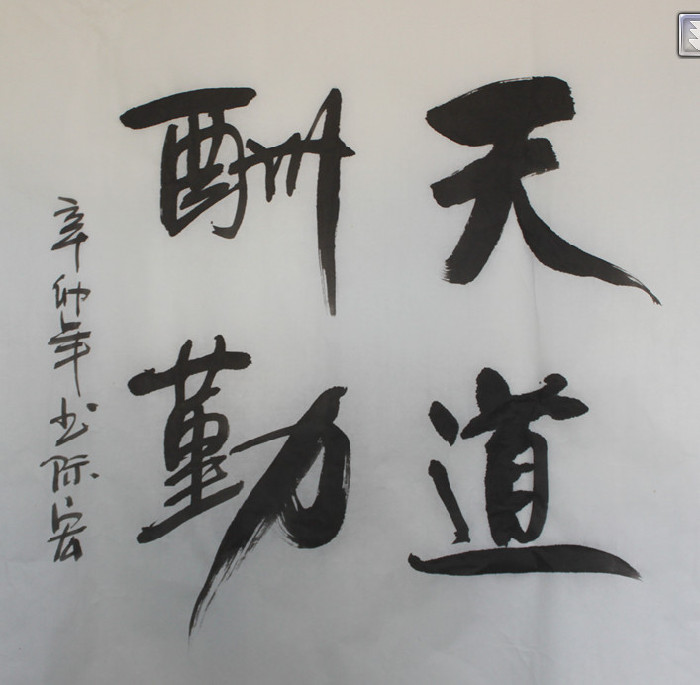 天道
酬勤
辛卯年书陈宏